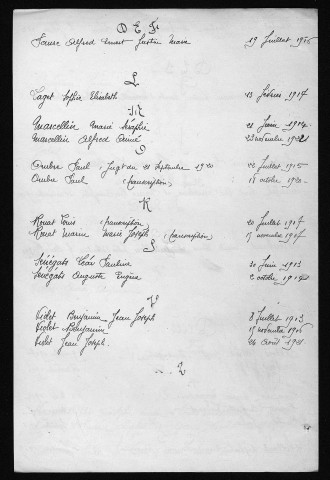 D E F
Faure Alfred Ernest Justin Marie 19 Juillet 1916
L
Laget Sophie Elisabeth 13 février 1917
M
Marcellin Marie Séraphie 21 Juin 1914
Marcellin Alfred Aimé 22 novembre 1921
O
Ombre Paul Jugt du 21 Septembre 22 Juillet 1915
Ombre Paul (transcription) 18 octobre 1920
R
Rouat Louis (transcription) 20 Juillet 1917
Rouat Marie Joseph (transcription) 15 novembre 1917
S
Sénégats Léon Paulin 20 Juin 1913
Sénégats Auguste Eugène 2 octobre 1914
V
Violet Benjamin Jean Joseph 8 Juillet 1913
Violet Benjamin 15 novembre
Violet Jean Joseph 24 août 1921
Z